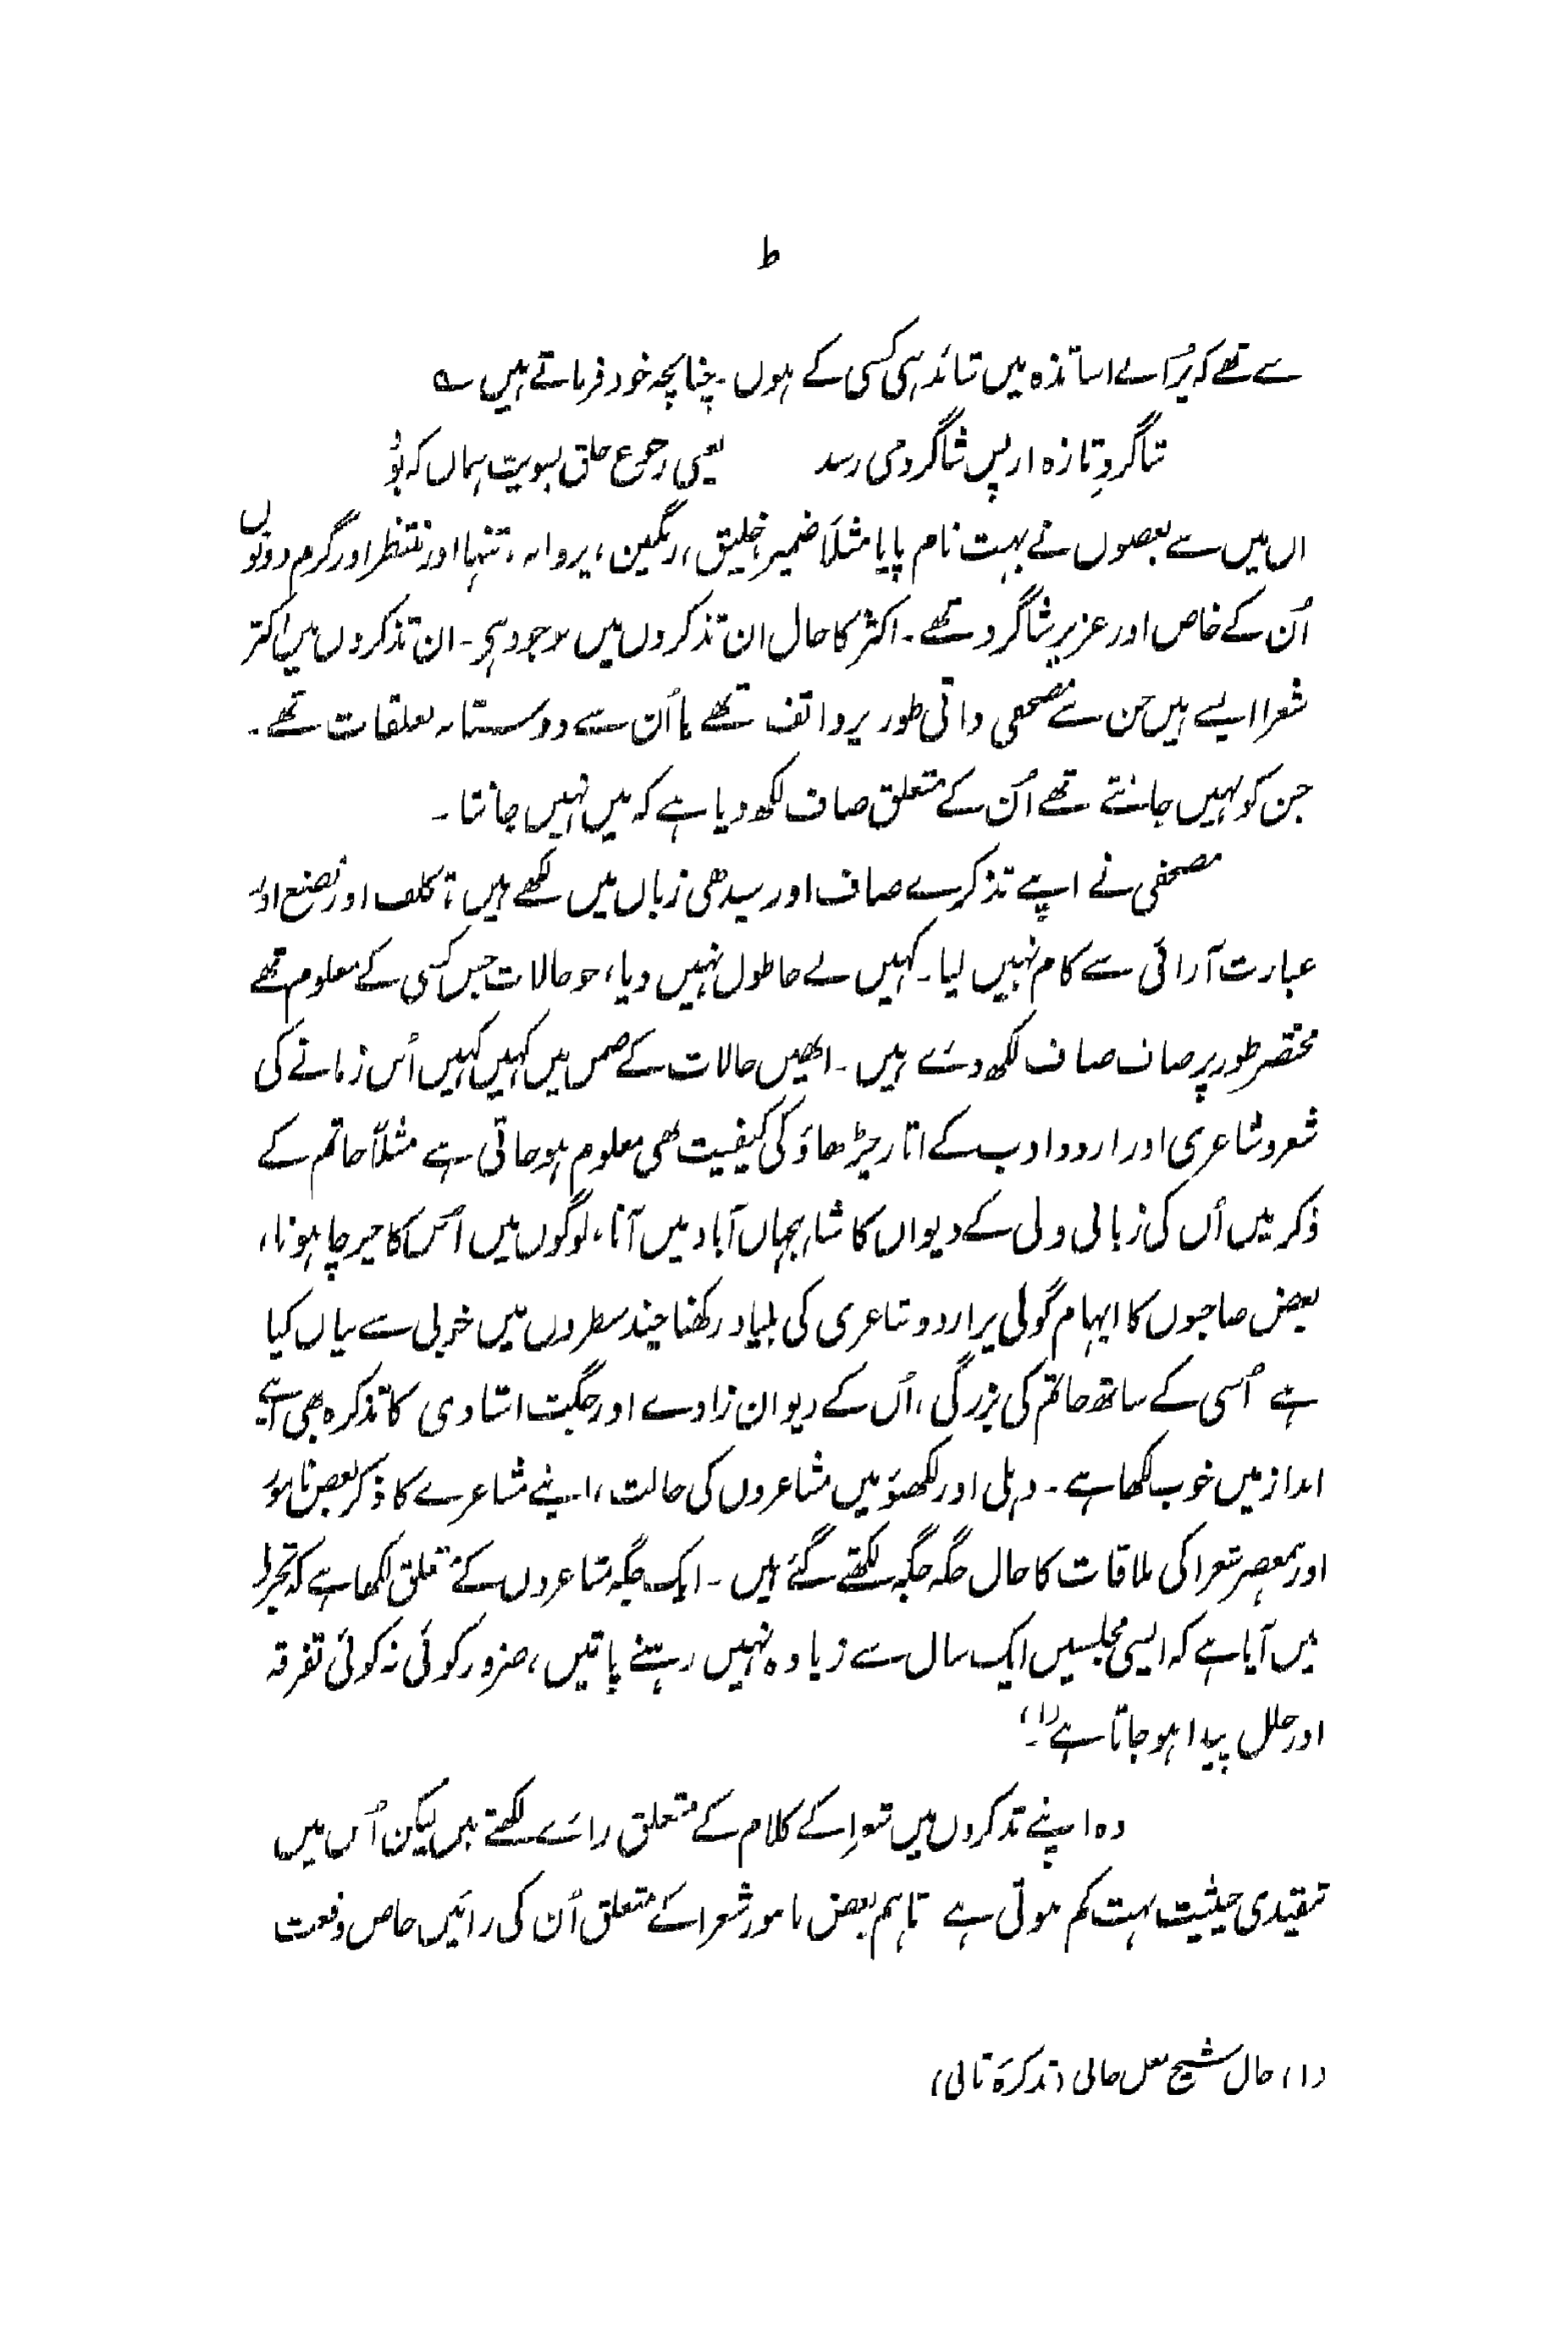 ط
سے تھے کہ پُرانے اساتذہ میں شائد ہی کسی کے ہوں۔ چنانچہ خود فرماتے ہیں ؎
شاگردِ تازہ از پس شاگرد می رسد یعنی رجوع خلق بسویت ہماں کہ بُو
ان میں سے بعضوں نے بہت نام پایا مثلاً ضمیر، خلیق، رنگین، پروانہ، تنہا اور منتظر اور گرم دونوں
اُن کے خاص اور عزیز شاگرد تھے۔ اکثر کا حال ان تذکروں میں موجود ہی۔ ان تذکروں میں اکثر
شعرا ایسے ہیں جن سے مصحفی ذاتی طور پر واقف تھے یا اُن سے دوستانہ تعلقات تھے۔
جن کو نہیں جانتے تھے اُن کے متعلق صاف لکھ دیا ہے کہ میں نہیں جانتا۔
مصحفی نے اپنے تذکرے صاف اور سیدھی زبان میں لکھے ہیں؛ تکلف اور تصنع اور
عبارت آرائی سے کام نہیں لیا۔ کہیں بے جا طول نہیں دیا، جو حالات جس کسی کے معلوم تھے
مختصر طور پر صاف صاف لکھ دئے ہیں۔ انھیں حالات کے ضمن میں کہیں کہیں اُس زمانے کی
شعر و شاعری اور اردو ادب کے اتار چڑھاؤ کی کیفیت بھی معلوم ہو جاتی ہے مثلاً حاتم کے
ذکر میں اُن کی زبانی ولی کے دیوان کا شاہجہاں آباد میں آنا، لوگوں میں اُس کا چرچا ہونا،
بعض صاحبوں کا ایہام گوئی پر اردو شاعری کی بنیاد رکھنا چند سطروں میں خوبی سے بیان کیا
ہے اُسی کے ساتھ حاتم کی بزرگی، اُن کے دیوان زادے اور جگت استادی کا تذکرہ بھی اپنے
انداز میں خوب لکھا ہے۔ دہلی اور لکھنؤ میں مشاعروں کی حالت، اپنے مشاعرے کا ذکر بعض نامور
اور ہمعصر شعرا کی ملاقات کا حال جگہ جگہ لکھتے گئے ہیں۔ ایک جگہ مشاعروں کے متعلق لکھا ہے کہ تجربہ
میں آیا ہے کہ ایسی مجلسیں ایک سال سے زیادہ نہیں رہنے پاتیں، ضرور کوئی نہ کوئی تفرقہ
اور خلل پیدا ہو جاتا ہے۔(۱)
وہ اپنے تذکروں میں شعرا کے کلام کے متعلق رائے لکھتے ہیں لیکن اُس میں
تنقیدی حیثیت بہت کم ہوتی ہے تاہم بعض نامور شعرا کے متعلق اُن کی رائیں خاص وقعت
(۱) حال شیخ حالی (تذکرۂ ثانی)